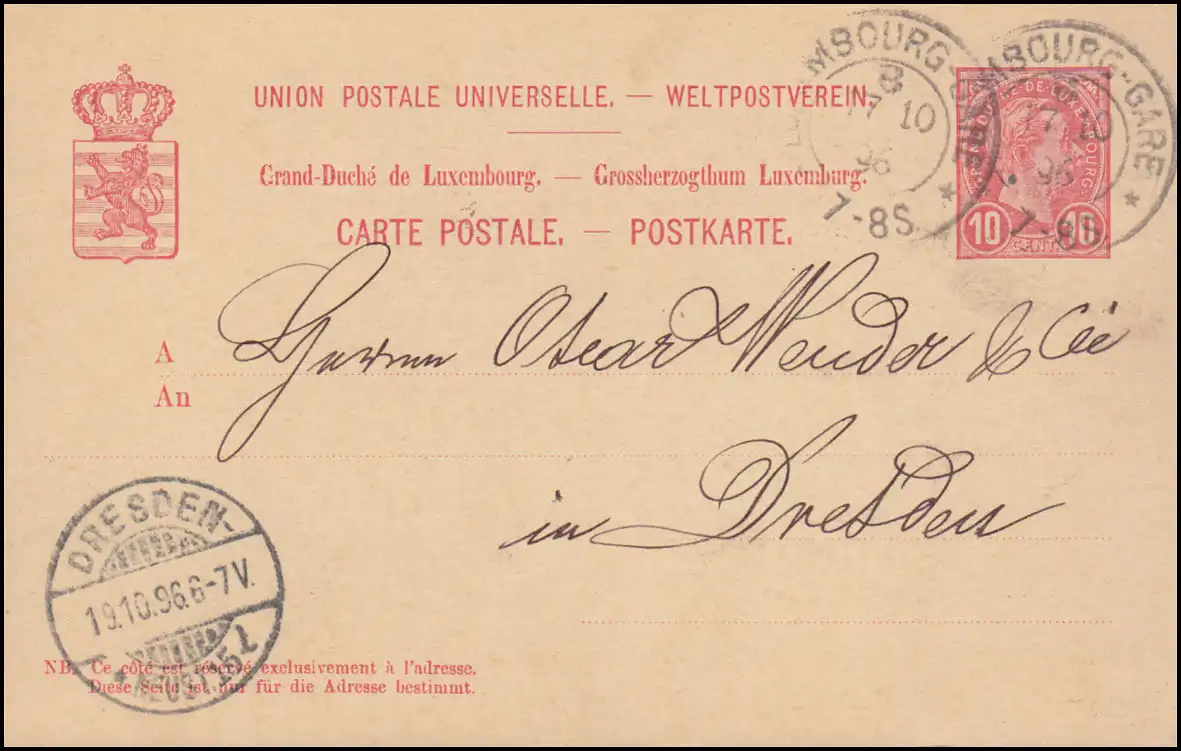 UNION POSTALE UNIVERSELLE. — WELTPOSTVEREIN.
Grand-Duché de Luxembourg. — Grossherzogthum Luxemburg.
CARTE POSTALE. — POSTKARTE.
LUXEMBOURG-GARE
8
17 10
96
7-8S
*
LUXEMBOURG-GARE
17 10
96
7-8S
*
GRAND DUCHÉ-DE-LUXEMBOURG
10 CENT. 10
A Herrn Oscar Wender & Cie
An
in Dresden
DRESDEN-
19.10.96.6-7V.
* NEUST. 15 l
NB. Ce côté est réservé exclusivement à l'adresse.
Diese Seite ist nur für die Adresse bestimmt.